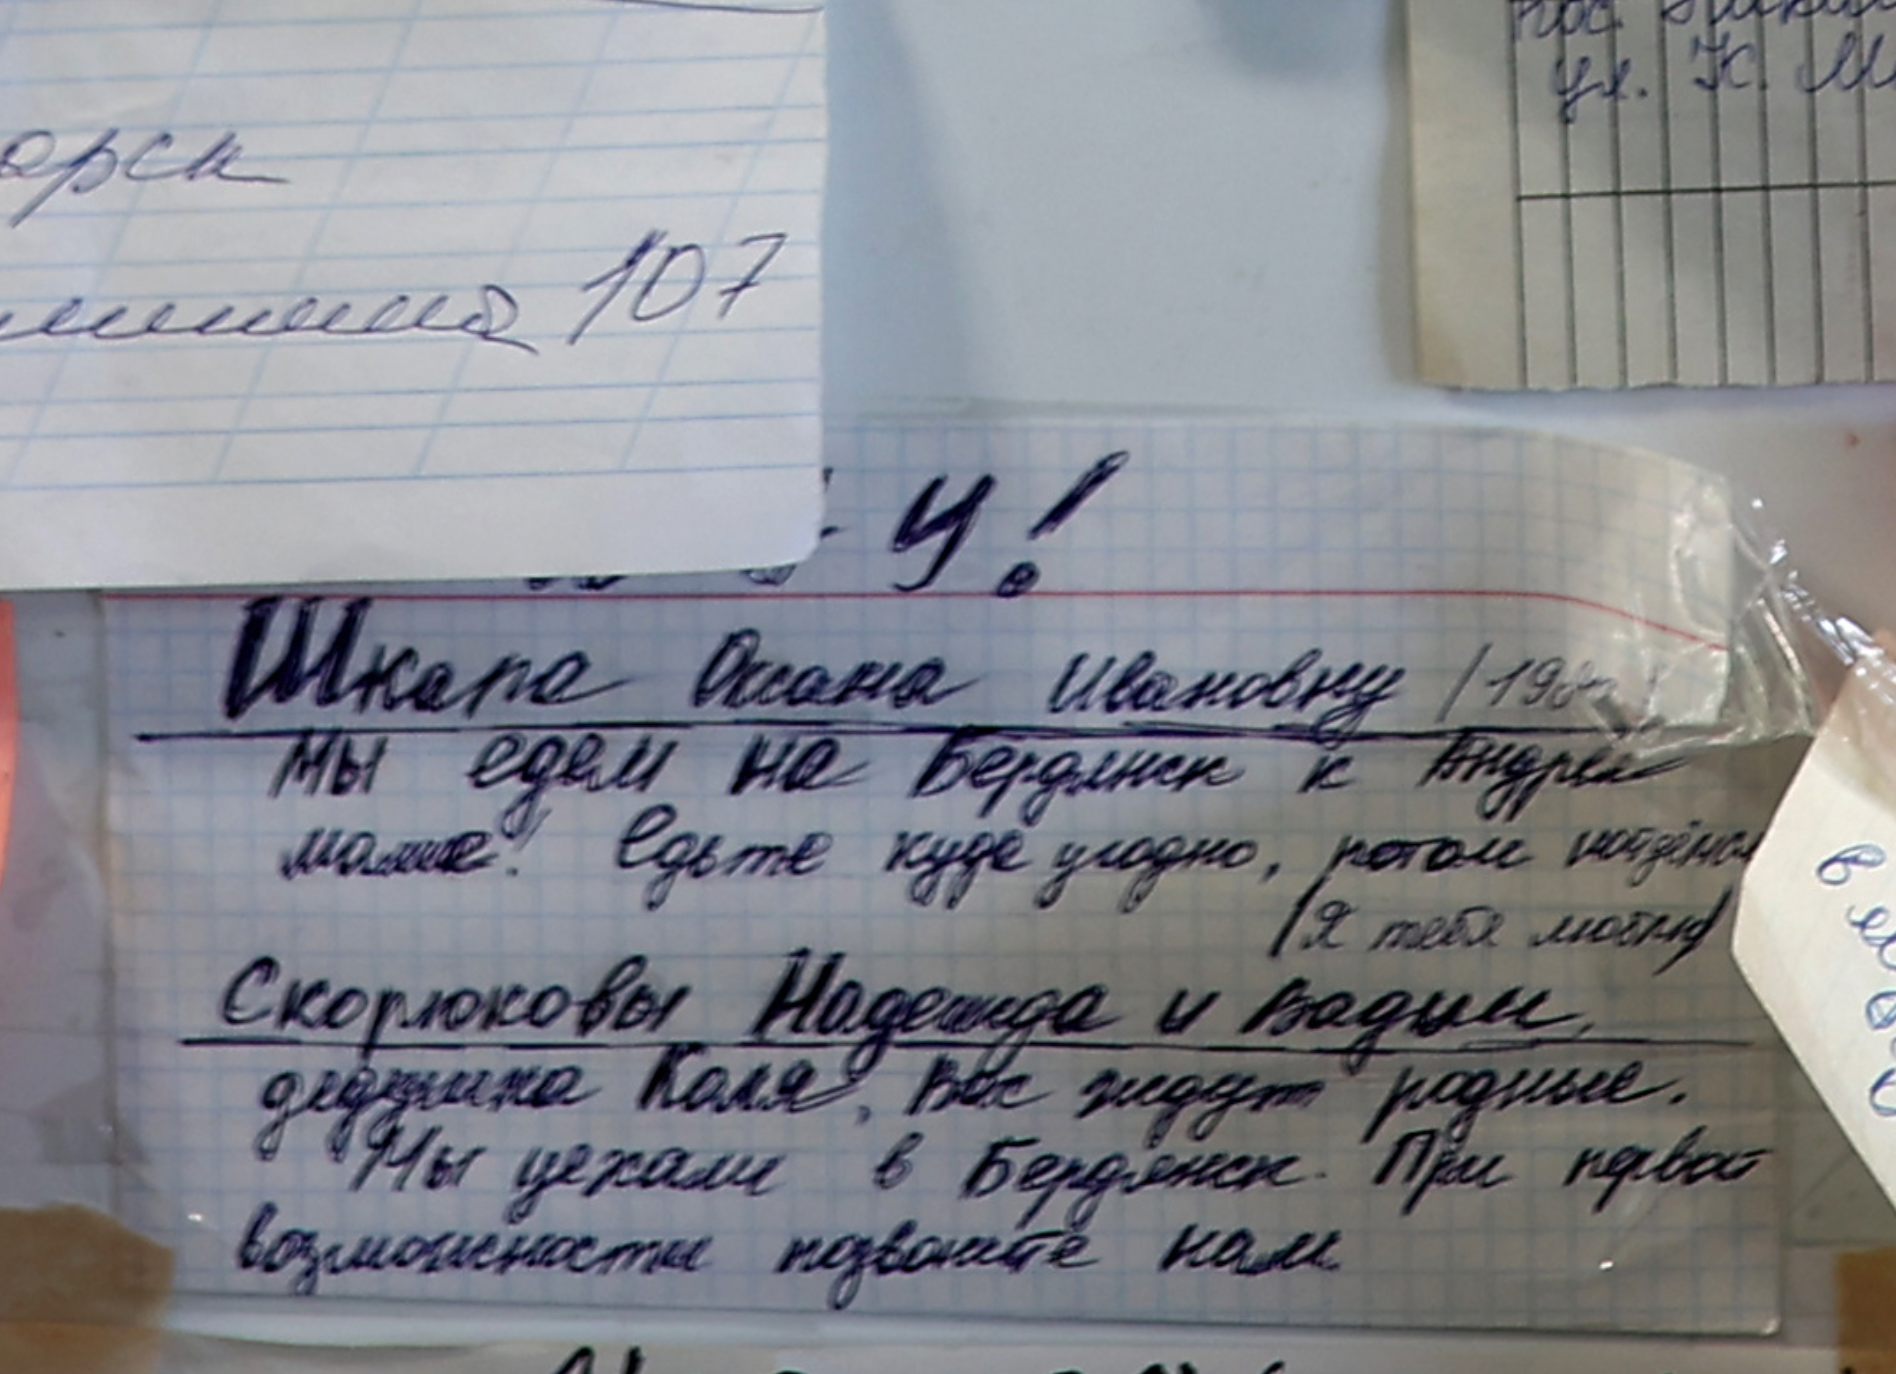 орск
107
ул. К. М
У!
Шкара Оксана Ивановну /198
Мы едем на Бердянск к Андрея
маме! Едьте куда угодно, потом найдёмся
/Я тебя люблю/
Скорлюковы Надежда и Вадим,
дедушка Коля, Вас ждут родные.
Мы уехали в Бердянск. При первой
возможности позвоните нам.
в